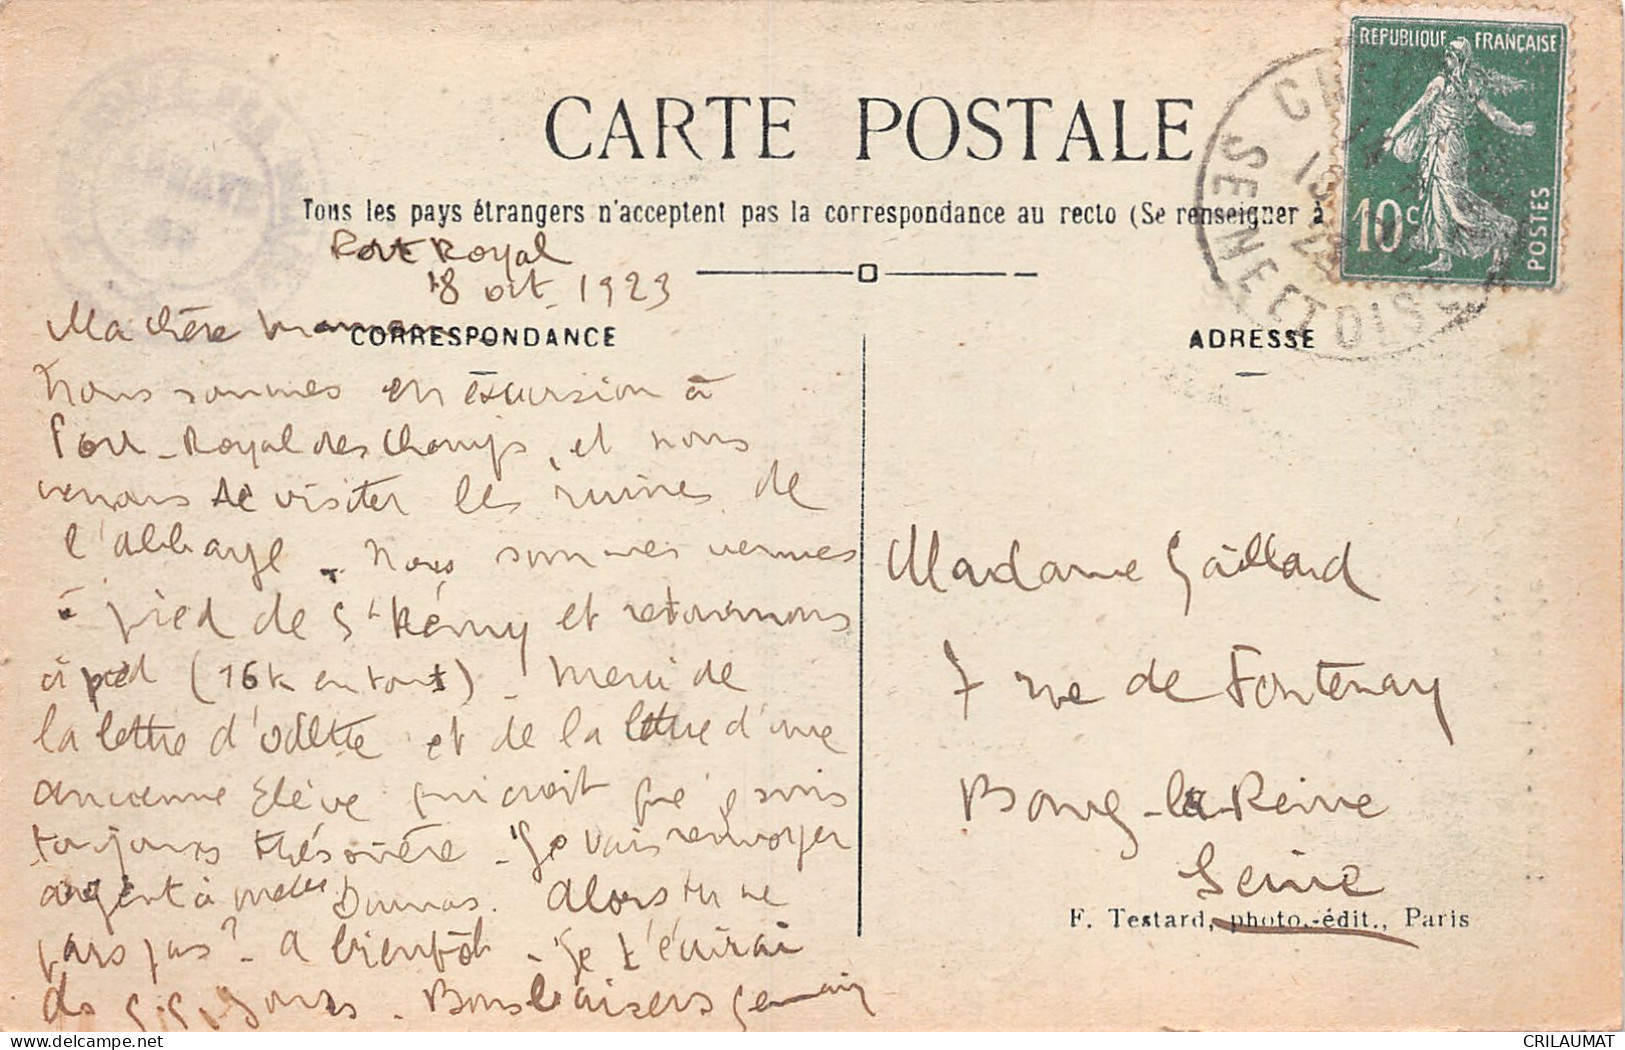 CARTE POSTALE
Tous les pays étrangers n'acceptent pas la correspondance au recto (Se renseigner à
REPUBLIQUE FRANÇAISE
10c
POSTES
SEINE ET OISE
Port Royal
18 oct. 1923
CORRESPONDANCE
ADRESSE
Ma chère maman
Nous sommes en excursion à
Port-Royal des Champs, et nous
venons de visiter les ruines de
l'abbaye. Nous sommes venues
à pied de St Rémy et retournons
à pied (16 k en tout). Merci de
la lettre d'Odette et de la lettre d'une
ancienne élève qui croit que je suis
toujours trésorière. Je vais renvoyer
argent à Dumas. Alors tu ne
pars pas? A bientôt. Je t'écrirai
ds jours. Bons baisers
Madame Gaillard
7 rue de Fontenay
Bourg-la-Reine
Seine
F. Testard, photo.-édit., Paris
CRILAUMAT